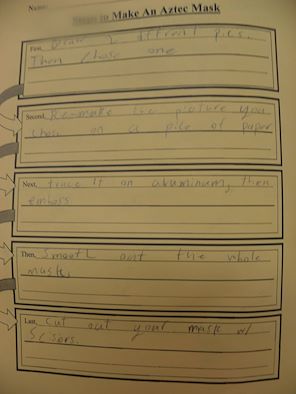 Name:
Steps to Make An Aztec Mask
First, Draw 2 diffrent pics.
Then chose one
Second, Re-make the picture you
chose on a pice of paper
Next, trace it on aluminum, then
emboss
Then, Smooth out the whole
mask.
Last, cut out your mask w/
Scisors.